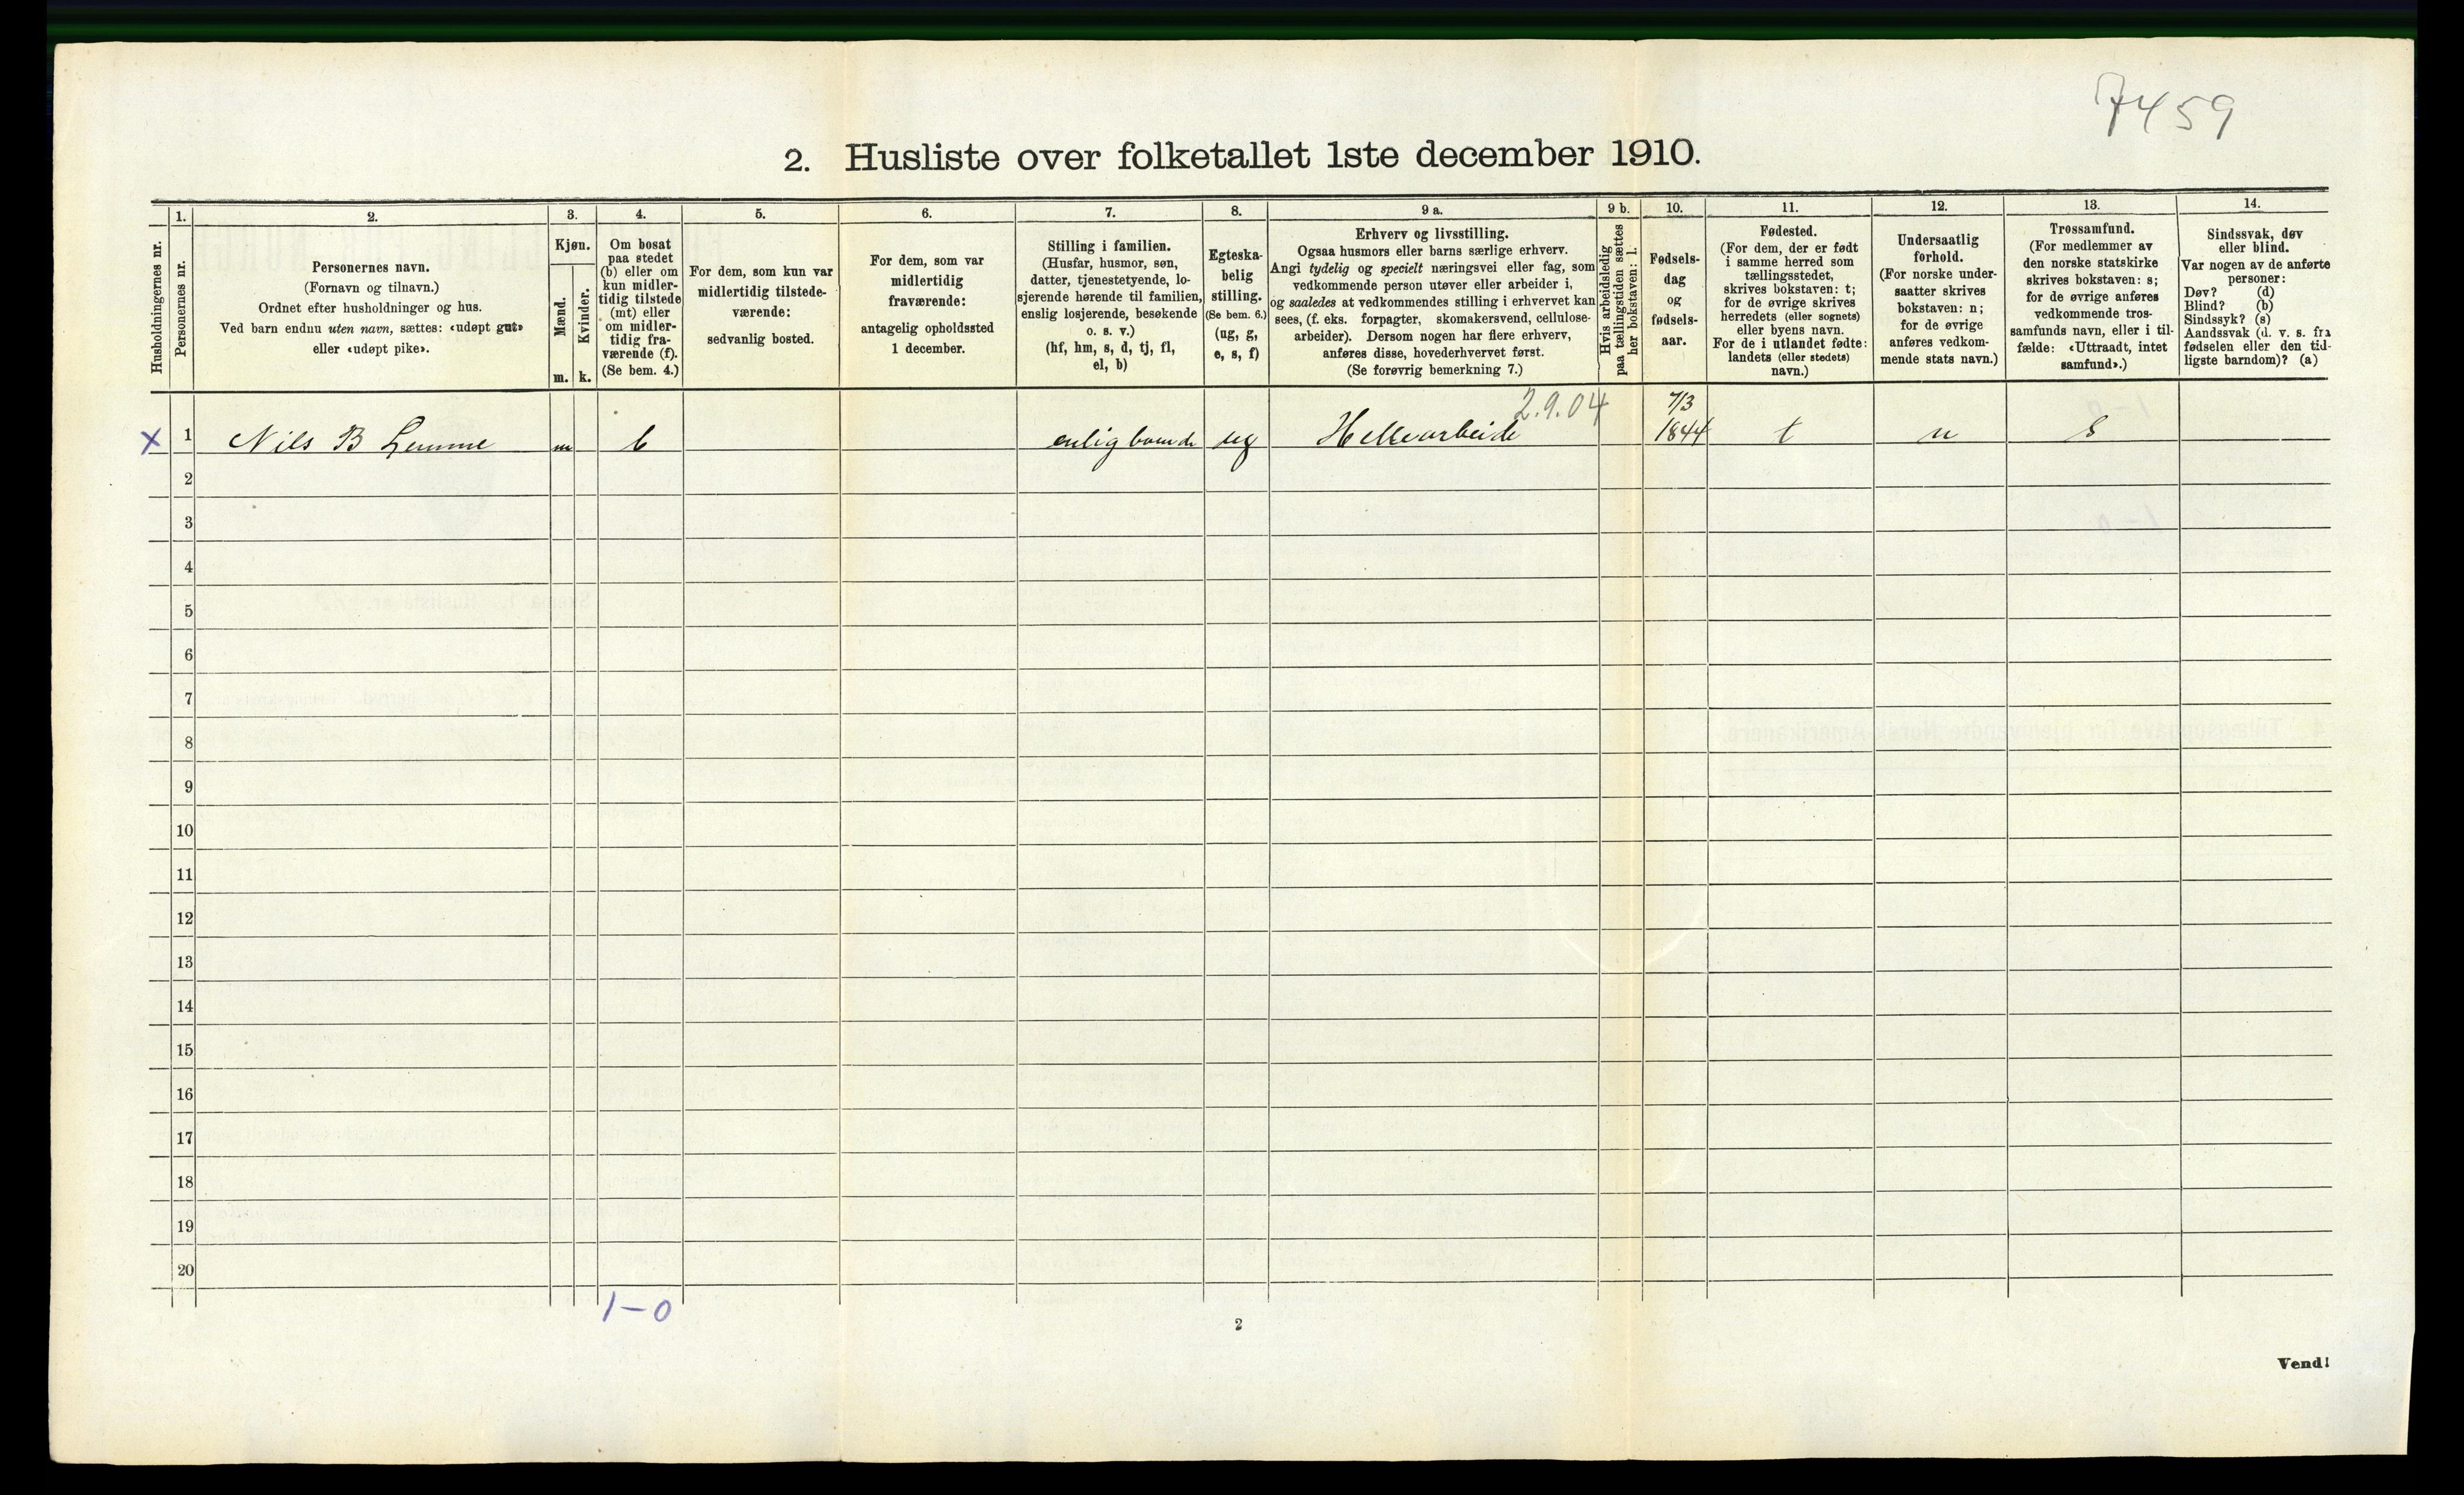 7459
2. Husliste over folketallet 1ste december 1910.
1. 2. 3. 4. 5. 6. 7. 8. 9 a. 9 b. 10. 11. 12. 13. 14.
Husholdningernes nr.
Personernes nr.
Personernes navn.
(Fornavn og tilnavn.)
Ordnet efter husholdninger og hus.
Ved barn endnu uten navn, sættes: «udøpt gut»
eller «udøpt pike».
Kjøn.
Mænd.
Kvinder.
m. k.
Om bosat
paa stedet
(b) eller om
kun midler-
tidig tilstede
(mt) eller
om midler-
tidig fra-
værende (f).
(Se bem. 4.)
For dem, som kun var
midlertidig tilstede-
værende:
sedvanlig bosted.
For dem, som var
midlertidig
fraværende:
antagelig opholdssted
1 december.
Stilling i familien.
(Husfar, husmor, søn,
datter, tjenestetyende, lo-
sjerende hørende til familien,
enslig losjerende, besøkende
o. s. v.)
(hf, hm, s, d, tj, fl,
el, b)
Egteska-
belig
stilling.
(Se bem. 6.)
(ug, g,
e, s, f)
Erhverv og livsstilling.
Ogsaa husmors eller barns særlige erhverv.
Angi tydelig og specielt næringsvei eller fag, som
vedkommende person utøver eller arbeider i,
og saaledes at vedkommendes stilling i erhvervet kan
sees, (f. eks. forpagter, skomakersvend, cellulose-
arbeider). Dersom nogen har flere erhverv,
anføres disse, hovederhvervet først.
(Se forøvrig bemerkning 7.)
Hvis arbeidsledig
paa tællingstiden sættes
her bokstaven: l.
Fødsels-
dag
og
fødsels-
aar.
Fødested.
(For dem, der er født
i samme herred som
tællingsstedet,
skrives bokstaven: t;
for de øvrige skrives
herredets (eller sognets)
eller byens navn.
For de i utlandet fødte:
landets (eller stedets)
navn.)
Undersaatlig
forhold.
(For norske under-
saatter skrives
bokstaven: n;
for de øvrige
anføres vedkom-
mende stats navn.)
Trossamfund.
(For medlemmer av
den norske statskirke
skrives bokstaven: s;
for de øvrige anføres
vedkommende tros-
samfunds navn, eller i til-
fælde: «Uttraadt, intet
samfund».)
Sindssvak, døv
eller blind.
Var nogen av de anførte
personer:
Døv? (d)
Blind? (b)
Sindssyk? (s)
Aandssvak (d. v. s. fra
fødselen eller den tid-
ligste barndom)? (a)
2.9.04 7/3
X 1 Nils B Lemme m b enlig boende ug Hellearbeide 1844 t n s
2
3
4
5
6
7
8
9
10
11
12
13
14
15
16
17
18
19
20
1-0
2
Vend!